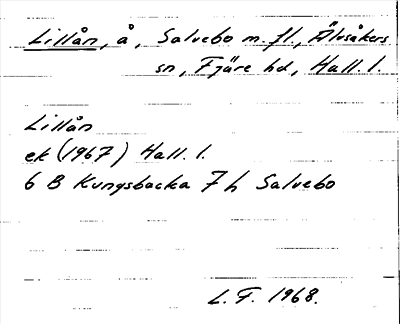 Lillån, å, Salvebo m. fl., Älvsåkers
sn, Fjäre hd, Hall. l.
Lillån
ek (1967) Hall. l.
6 B Kungsbacka 7 h Salvebo
L. F. 1968.